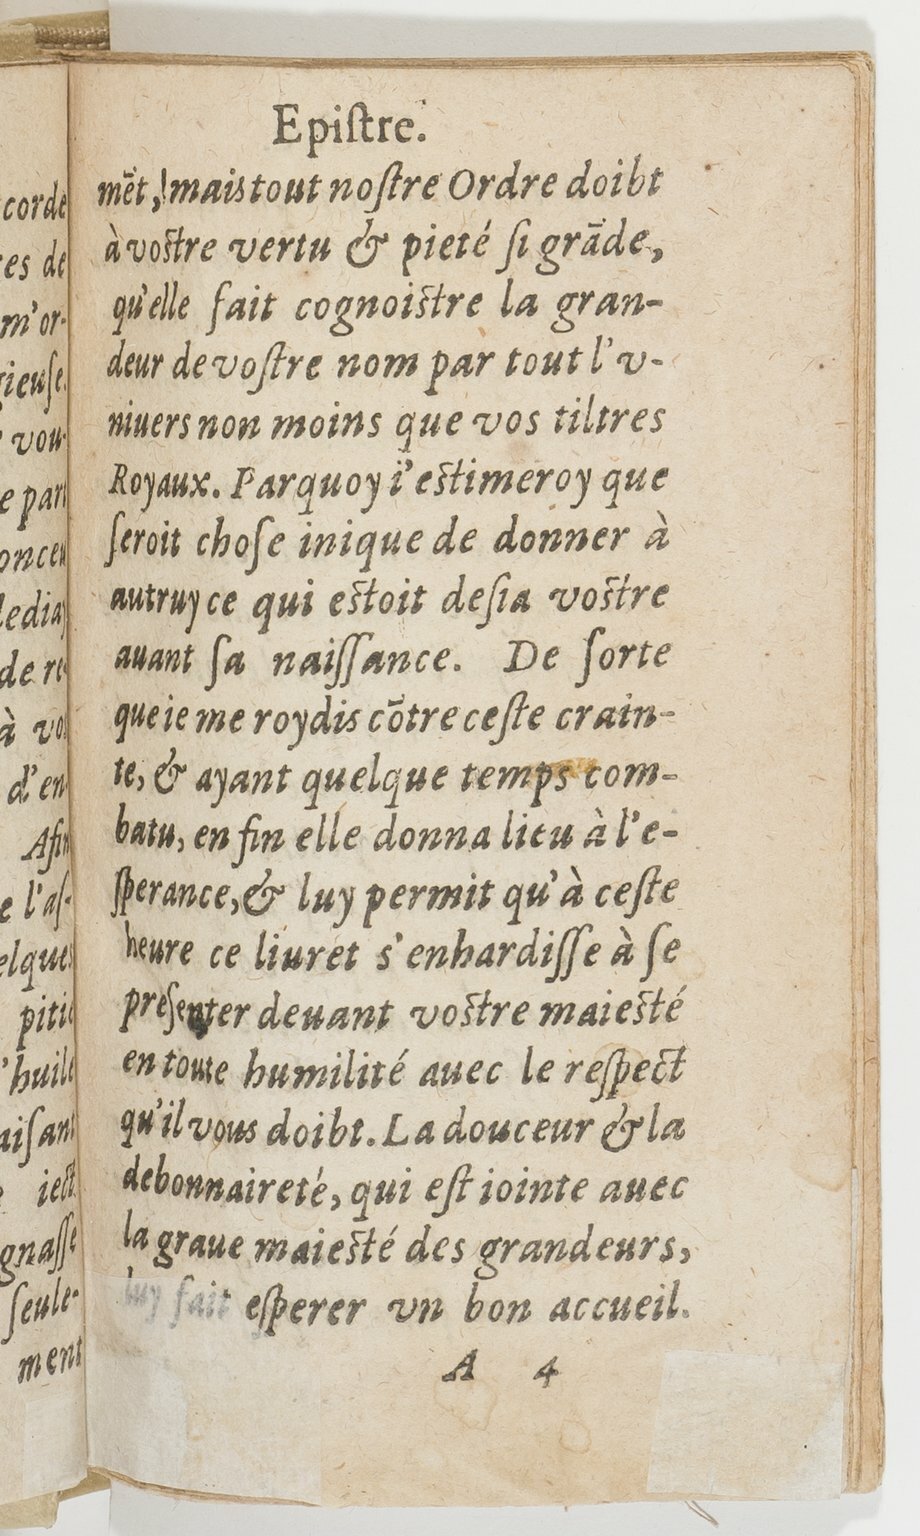 Epiſtre.
mēt, mais tout noſtre Ordre doibt
à voſtre vertu & pieté ſi grāde,
qu'elle fait cognoiſtre la gran-
deur de voſtre nom par tout l'v-
niuers non moins que vos tiltres
Royaux. Parquoy i'eſtimeroy que
ſeroit choſe inique de donner à
autruy ce qui eſtoit deſia voſtre
auant ſa naiſſance. De ſorte
que ie me roydis cōtre ceſte crain-
te, & ayant quelque temps com-
batu, en fin elle donna lieu à l'e-
ſperance, & luy permit qu'à ceſte
heure ce liuret s'enhardiſſe à ſe
preſenter deuant voſtre maieſté
en toute humilité auec le reſpect
qu'il vous doibt. La douceur & la
debonnaireté, qui eſt iointe auec
la graue maieſté des grandeurs,
luy fait eſperer vn bon accueil.
A 4
corde
es de
m'or-
gieuſe
vou-
e par
once
de re-
à vo
d'en
Afin
e l'aſ-
elque
pitié
'huile
aiſant
iect
gnaſſe
ſeule-
ment